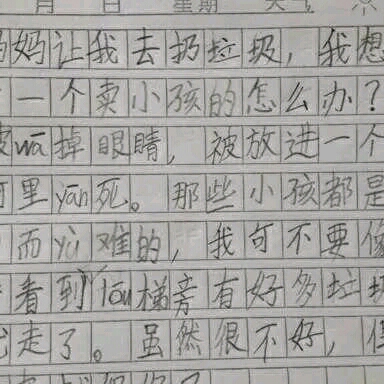 月 日 星期 天气
妈让我去扔垃圾，我想
一个卖小孩的怎么办？
被wā掉眼睛，被放进一个
里yān死。那些小孩都是
而yù难的，我可不要像
看到lóu梯旁有好多垃圾
走了。虽然很不好，但